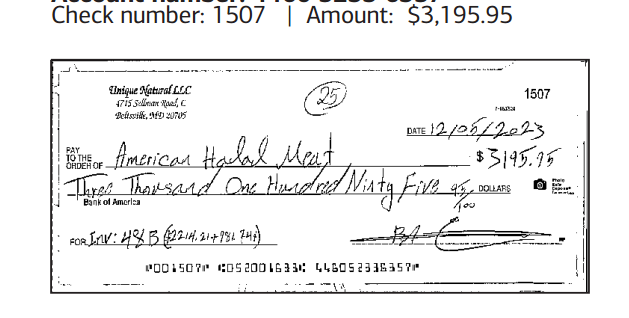 Check number: 1507 | Amount: $3,195.95
Unique Natural LLC
4715 Sellman Road, C
Beltsville, MD 20705
25
1507
DATE 12/05/2023
PAY TO THE ORDER OF American Halal Meat $3195.95
Three Thousand One Hundred Ninty Five 95/100 DOLLARS
Bank of America
FOR Inv:
⑈001507⑈ ⑆052001633⑆ 446052336357⑈